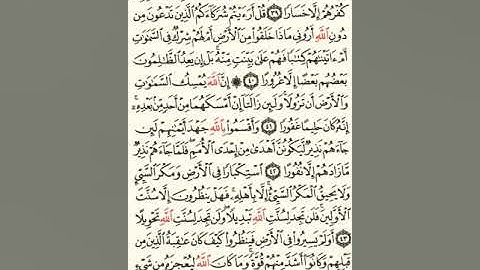 كُفْرُهُمْ إِلَّا خَسَارًا ٣٩ قُلْ أَرَءَيْتُمْ شُرَكَاءَكُمُ الَّذِينَ تَدْعُونَ مِن
دُونِ اللَّهِ أَرُونِي مَاذَا خَلَقُوا مِنَ الْأَرْضِ أَمْ لَهُمْ شِرْكٌ فِي السَّمَٰوَٰتِ
أَمْ ءَاتَيْنَٰهُمْ كِتَٰبًا فَهُمْ عَلَىٰ بَيِّنَتٍ مِّنْهُ ۚ بَلْ إِن يَعِدُ الظَّٰلِمُونَ
بَعْضُهُم بَعْضًا إِلَّا غُرُورًا ٤٠ ۞ إِنَّ اللَّهَ يُمْسِكُ السَّمَٰوَٰتِ
وَالْأَرْضَ أَن تَزُولَا ۚ وَلَئِن زَالَتَا إِنْ أَمْسَكَهُمَا مِنْ أَحَدٍ مِّن بَعْدِهِ ۚ
إِنَّهُ كَانَ حَلِيمًا غَفُورًا ٤١ وَأَقْسَمُوا بِاللَّهِ جَهْدَ أَيْمَٰنِهِمْ لَئِن
جَاءَهُمْ نَذِيرٌ لَّيَكُونُنَّ أَهْدَىٰ مِنْ إِحْدَى الْأُمَمِ ۖ فَلَمَّا جَاءَهُمْ نَذِيرٌ
مَّا زَادَهُمْ إِلَّا نُفُورًا ٤٢ اسْتِكْبَارًا فِي الْأَرْضِ وَمَكْرَ السَّيِّئِ ۚ
وَلَا يَحِيقُ الْمَكْرُ السَّيِّئُ إِلَّا بِأَهْلِهِ ۚ فَهَلْ يَنظُرُونَ إِلَّا سُنَّتَ
الْأَوَّلِينَ ۚ فَلَن تَجِدَ لِسُنَّتِ اللَّهِ تَبْدِيلًا ۖ وَلَن تَجِدَ لِسُنَّتِ اللَّهِ تَحْوِيلًا
٤٣ أَوَلَمْ يَسِيرُوا فِي الْأَرْضِ فَيَنظُرُوا كَيْفَ كَانَ عَٰقِبَةُ الَّذِينَ مِن
قَبْلِهِمْ وَكَانُوا أَشَدَّ مِنْهُمْ قُوَّةً ۚ وَمَا كَانَ اللَّهُ لِيُعْجِزَهُ مِن شَيْءٍ